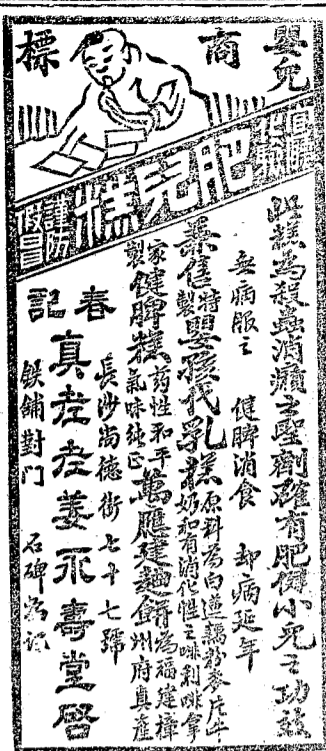 嬰兒
商
標
國貨
肥兒糕
謹防
假冒
此糕為殺蟲消癪之聖劑確有肥健小兒之功效
無病服之 健脾消食 却病延年
藥售特製嬰孩代乳糕原料為白蓮藕粉麥片牛奶和有消化性之啡利啡拿
家製健脾糕药性和平氣味純正萬應建麯餅為福建樟州府真產
長沙尚德街七十七號
春記真老老姜永壽堂啓
鉄鋪對门 石碑為記